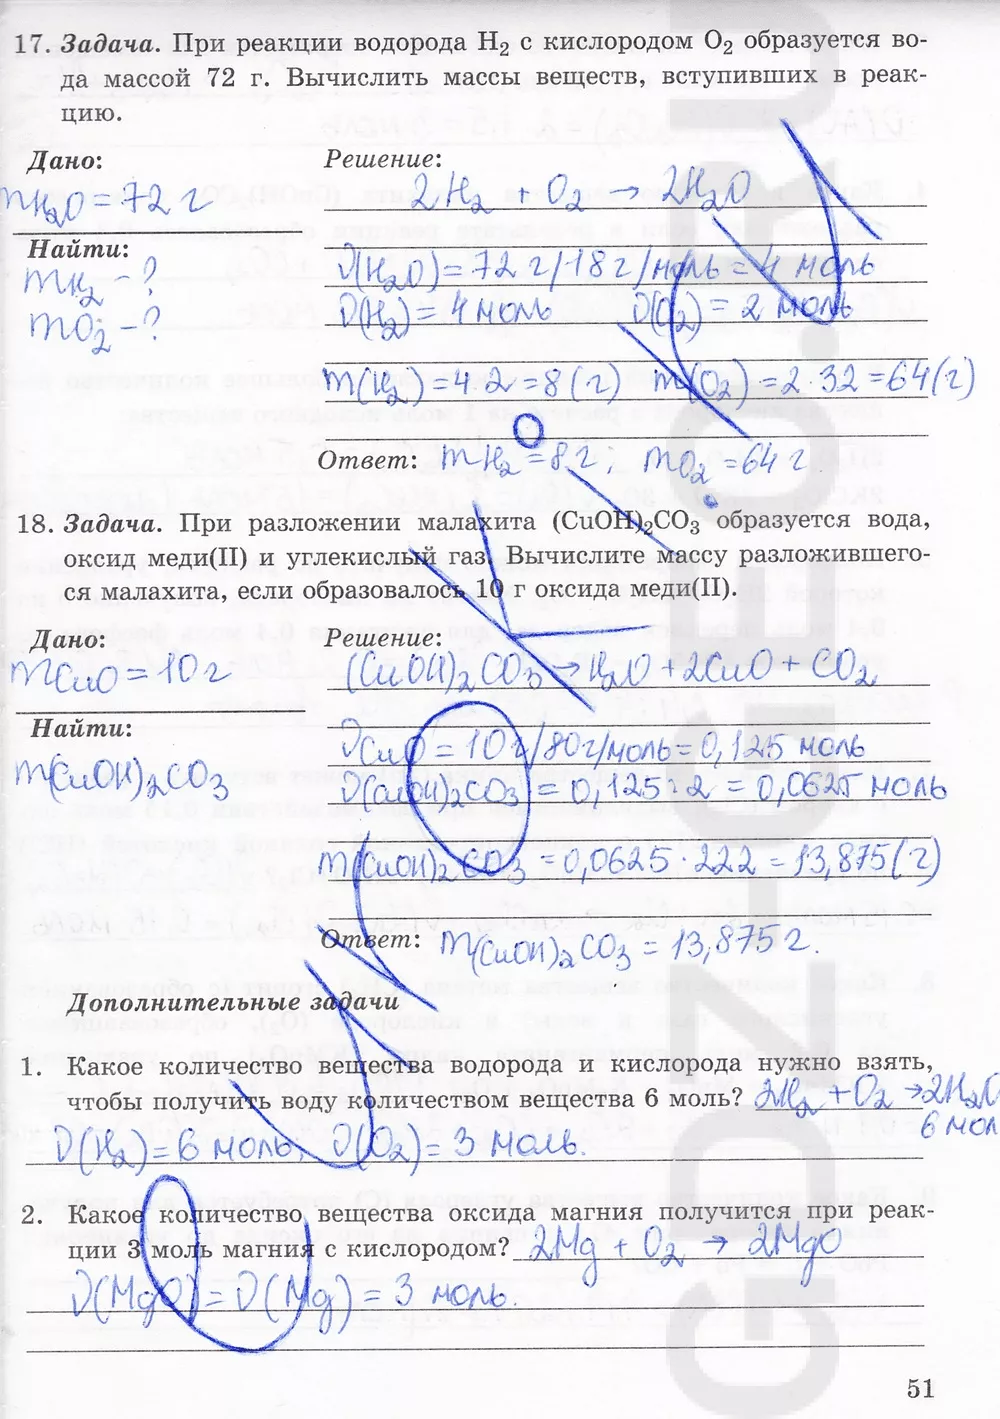 17. Задача. При реакции водорода H₂ с кислородом O₂ образуется во-
да массой 72 г. Вычислить массы веществ, вступивших в реак-
цию.
Дано:
mH₂O = 72 г
Найти:
mH₂ - ?
mO₂ - ?
Решение:
2H₂ + O₂ → 2H₂O
ν(H₂O) = 72 г/18 г/моль = 4 моль
ν(H₂) = 4 моль ν(O₂) = 2 моль
m(H₂) = 4·2 = 8 (г) m(O₂) = 2·32 = 64 (г)
Ответ: mH₂ = 8 г; mO₂ = 64 г.
18. Задача. При разложении малахита (CuOH)₂CO₃ образуется вода,
оксид меди(II) и углекислый газ. Вычислите массу разложившего-
ся малахита, если образовалось 10 г оксида меди(II).
Дано:
mCuO = 10 г
Найти:
m(CuOH)₂CO₃
Решение:
(CuOH)₂CO₃ → H₂O + 2CuO + CO₂
νCuO = 10 г/80 г/моль = 0,125 моль
ν(CuOH)₂CO₃ = 0,125 : 2 = 0,0625 моль
m(CuOH)₂CO₃ = 0,0625 · 222 = 13,875 (г)
Ответ: m(CuOH)₂CO₃ = 13,875 г.
Дополнительные задачи
1. Какое количество вещества водорода и кислорода нужно взять,
чтобы получить воду количеством вещества 6 моль? 2H₂ + O₂ → 2H₂O
6 мол
ν(H₂) = 6 моль, ν(O₂) = 3 моль.
2. Какое количество вещества оксида магния получится при реак-
ции 3 моль магния с кислородом? 2Mg + O₂ → 2MgO
ν(MgO) = ν(Mg) = 3 моль.
51